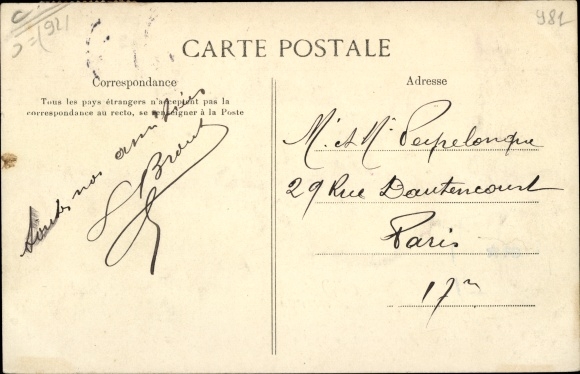 981
CARTE POSTALE
Correspondance
Tous les pays étrangers n'acceptent pas la
correspondance au recto, se renseigner à la Poste
Toutes nos amitiés
Adresse
Mr & Me
29 Rue Dautencourt
Paris
17me